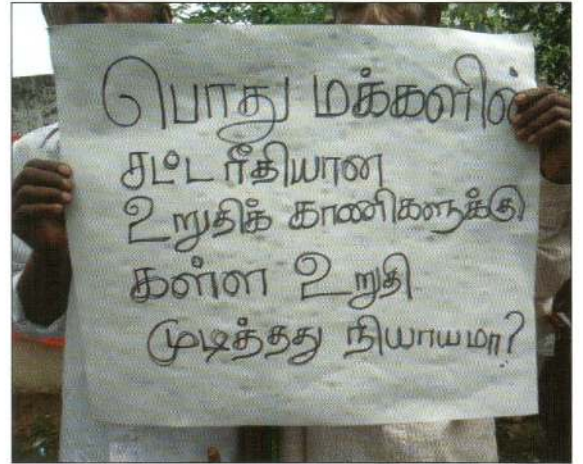 பொது மக்களின்
சட்டரீதியான
உறுதிக் காணிகளுக்கு
கள்ள உறுதி
முடித்தது நியாயமா?